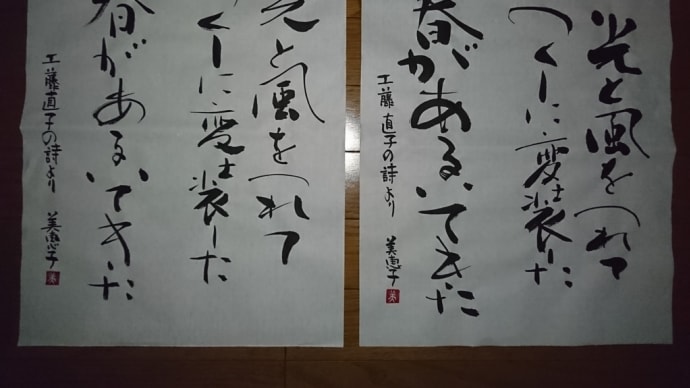 光と風をつれて
つくしに変装した
春があるいてきた
工藤直子の詩より 美恵子
光と風をつれて
くしに変装した
春があるいてきた
工藤直子の詩より 美恵子